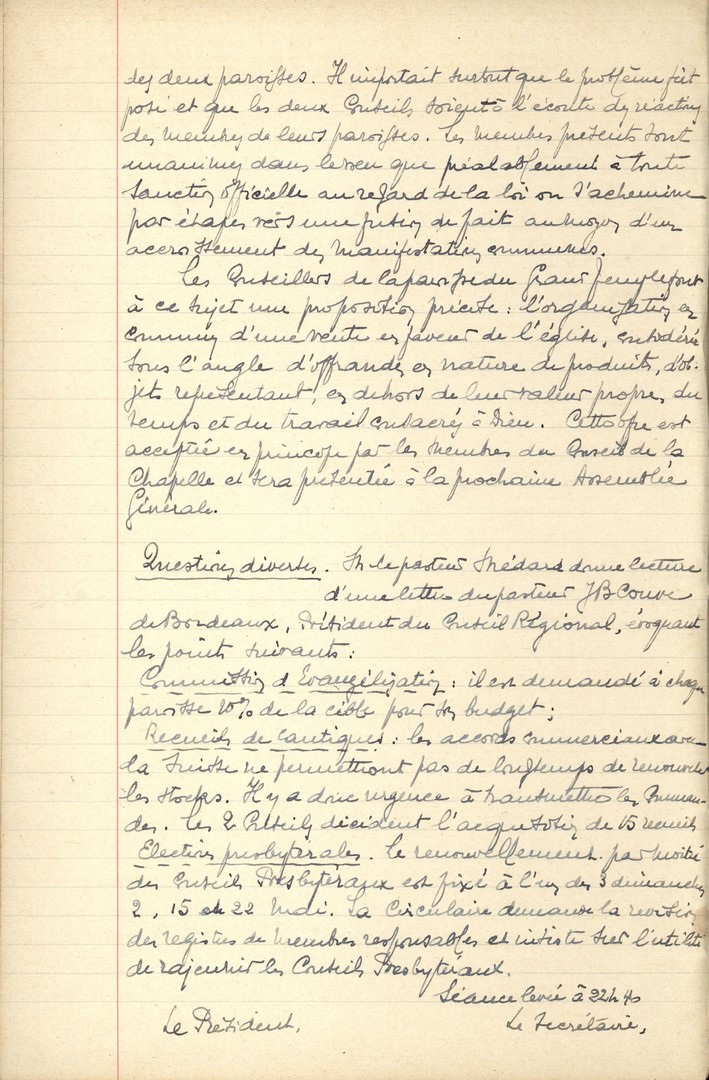 des deux paroisses. Il importait surtout que le problème fût
posé et que les deux Conseils soient à l'écoute des réactions
des membres de leurs paroisses. Les membres présents sont
unanimes dans le voeu que préalablement à toute
sanction officielle au regard de la loi on s'achemine
par étapes vers une fusion de fait au moyen d'un
accroissement des manifestations communes.
Les Conseillers de la paroisse du Grand Temple font
à ce sujet une proposition précise : l'organisation en
commun d'une vente en faveur de l'église, considérée
sous l'angle d'offrandes en nature de produits, d'ob-
jets représentant, en dehors de leur valeur propre, du
temps et du travail consacrés à Dieu. Cette offre est
acceptée en principe par les membres du Conseil de la
Chapelle et sera présentée à la prochaine Assemblée
Générale.
Questions diverses. M le pasteur Médard donne lecture
d'une lettre du pasteur JB Couve
de Bordeaux, Président du Conseil Régional, évoquant
les points suivants :
Commission d'Evangélisation : il est demandé à chaque
paroisse 10% de la cible pour son budget ;
Recueils de Cantiques : les accords commerciaux avec
la Suisse ne permettront pas de longtemps de renouveler
les stocks. Il y a donc urgence à transmettre les comman-
des. Les 2 Conseils décident l'acquisition de 15 recueils
Elections presbytérales. Le renouvellement par moitié
des Conseils Presbytéraux est fixé à l'un des 3 dimanches
2, 15 et 22 Mai. La Circulaire demande la révision
des registres de membres responsables et insiste sur l'utilité
de rajeunir les Conseils Presbytéraux.
Séance levée à 22h 40
Le Président, Le Secrétaire,